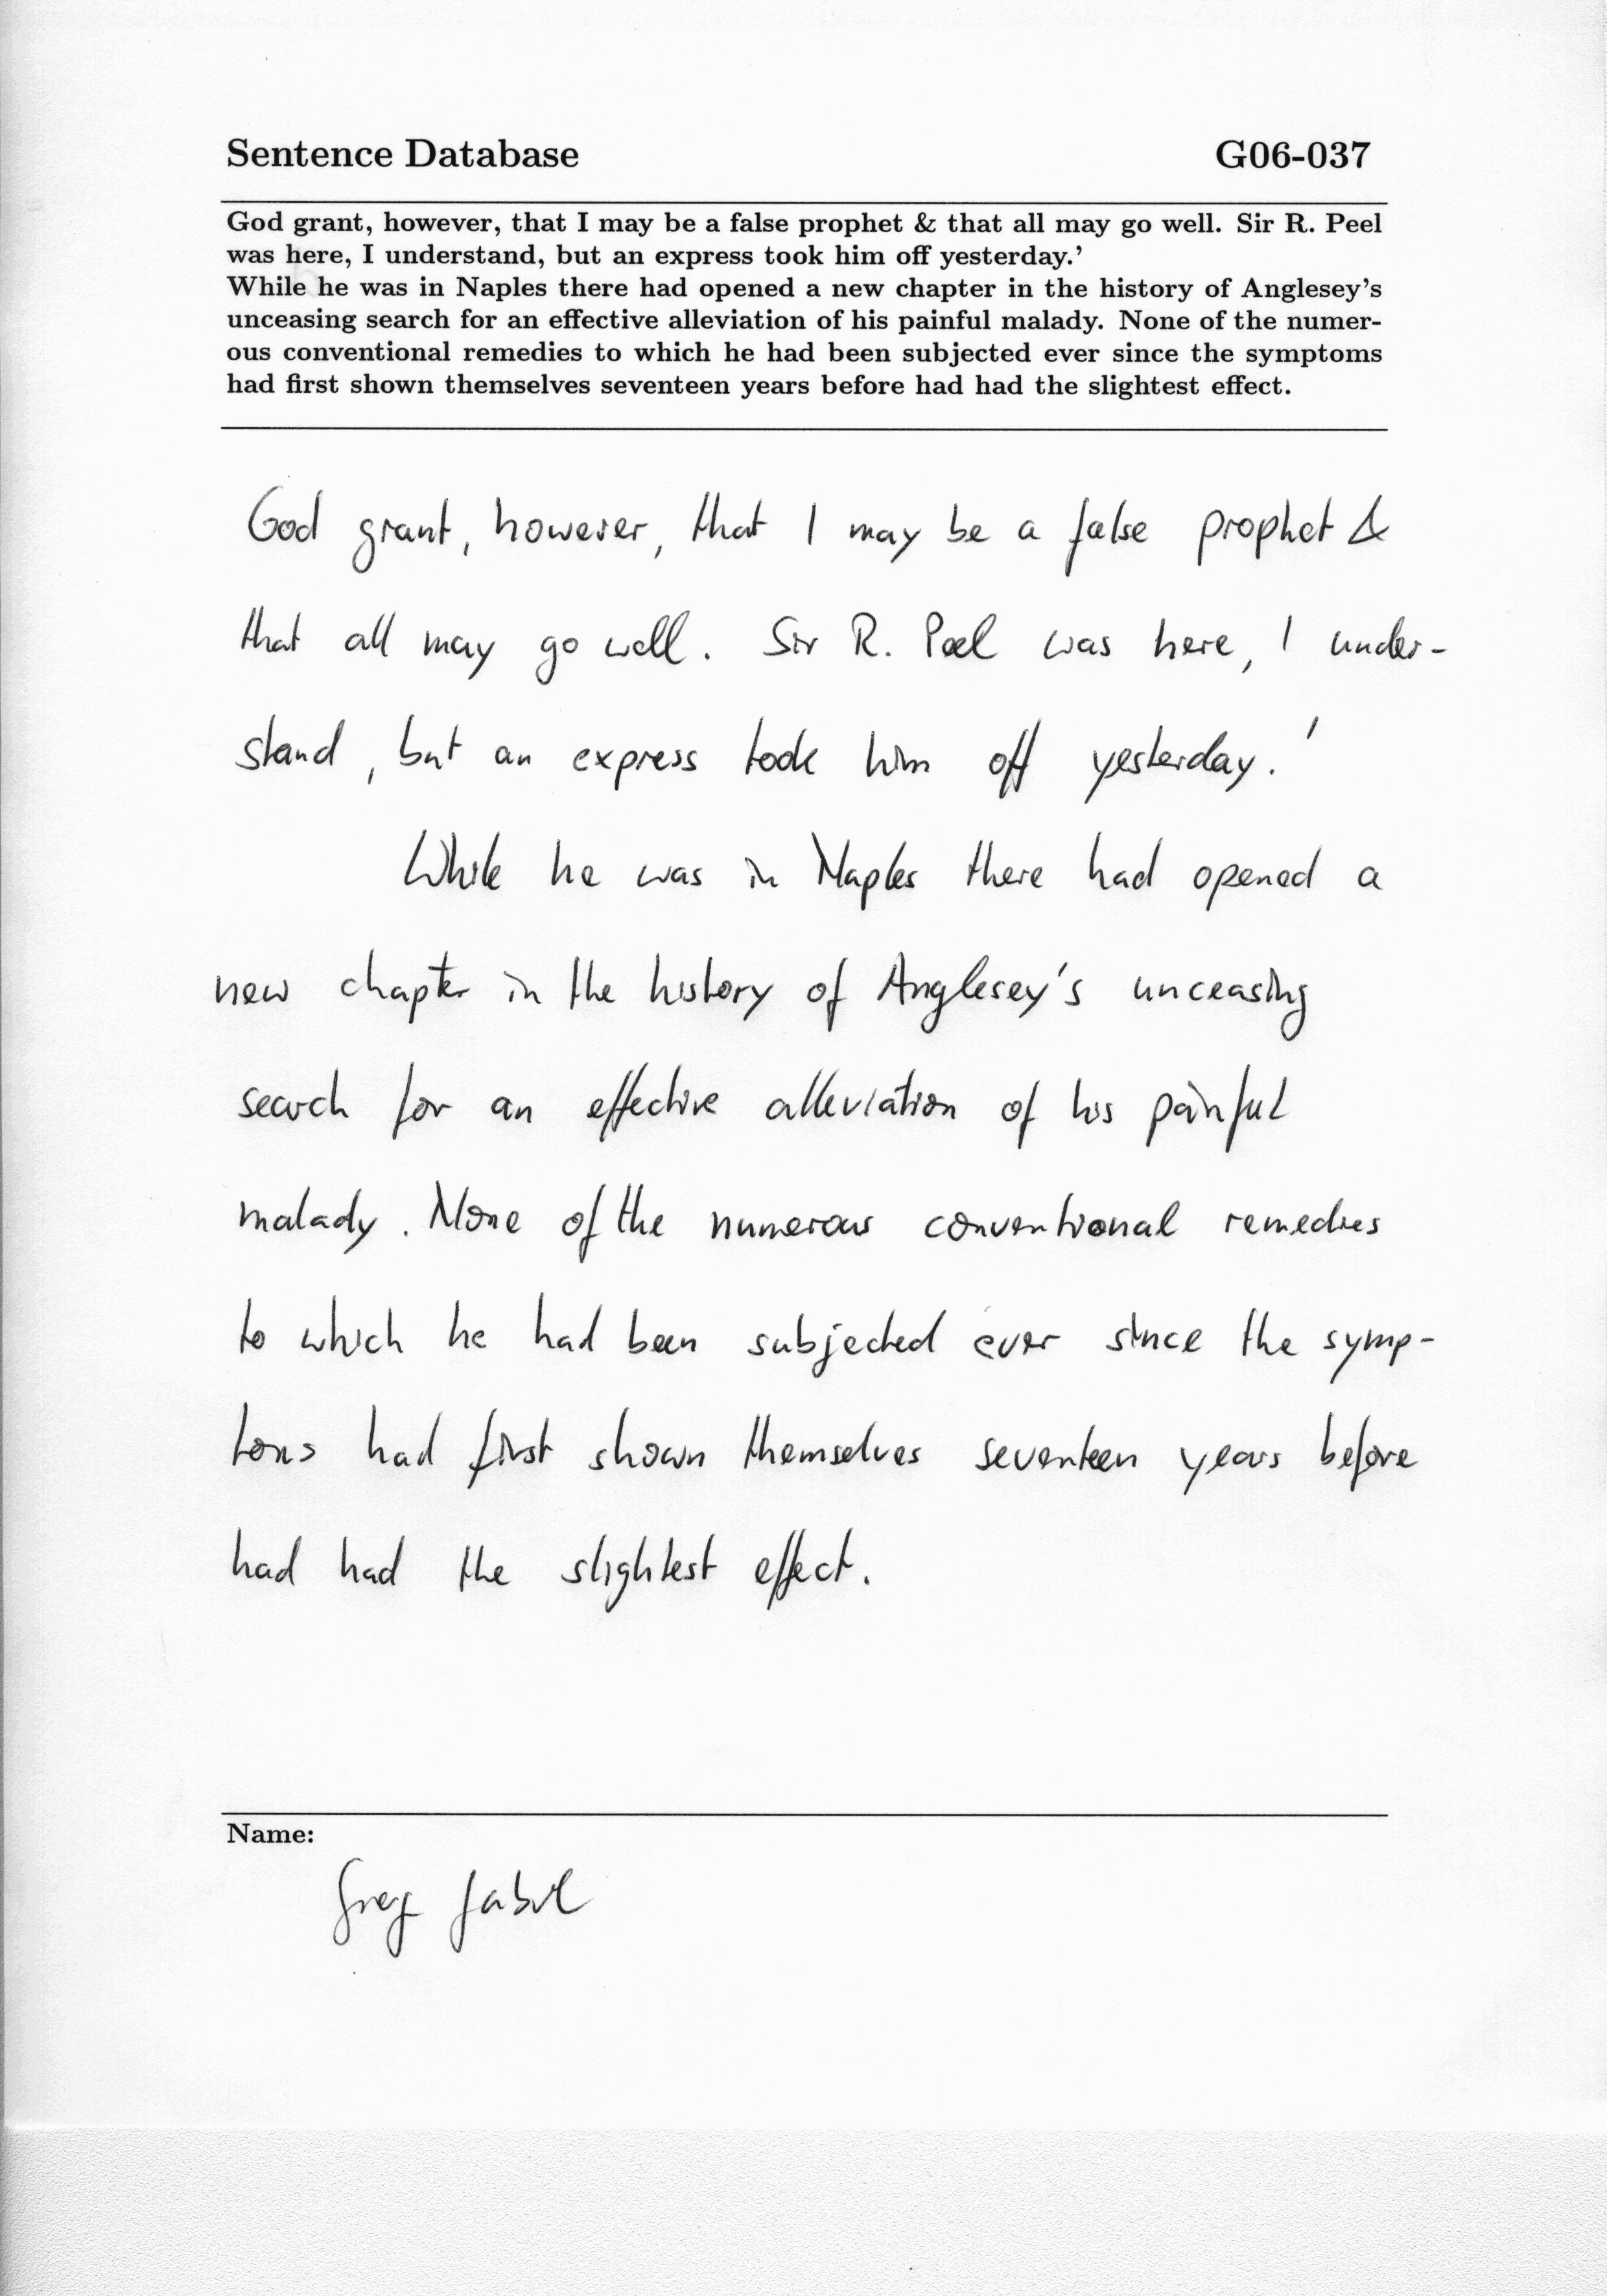 Sentence Database G06-037
God grant, however, that I may be a false prophet & that all may go well. Sir R. Peel
was here, I understand, but an express took him off yesterday.’
While he was in Naples there had opened a new chapter in the history of Anglesey’s
unceasing search for an effective alleviation of his painful malady. None of the numer-
ous conventional remedies to which he had been subjected ever since the symptoms
had first shown themselves seventeen years before had had the slightest effect.
God grant, however, that I may be a false prophet &
that all may go well. Sir R. Peel was here, I under-
stand, but an express took him off yesterday.'
While he was in Naples there had opened a
new chapter in the history of Anglesey's unceasing
search for an effective alleviation of his painful
malady. None of the numerous conventional remedies
to which he had been subjected ever since the symp-
toms had first shown themselves seventeen years before
had had the slightest effect.
Name:
Greg